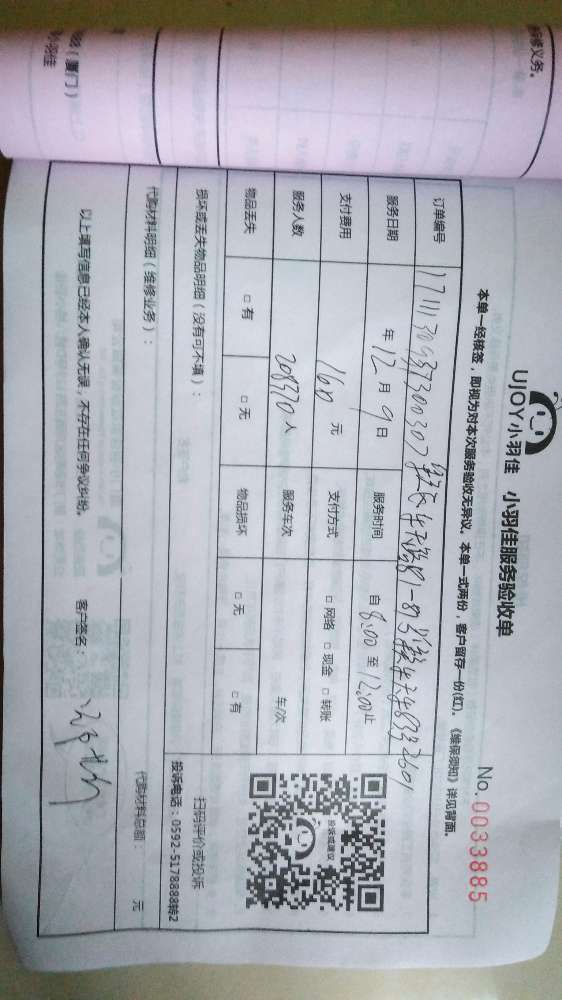 保修义务。
（厦门）
小羽佳
UJOY小羽佳 小羽佳服务验收单
No. 0033885
本单一经核签，即视为对本次服务验收无异议。本单一式两份，客户留存一份(红)。《维保须知》详见背面。
订单编号
服务日期 年 12 月 9 日 服务时间 自 8:00 至 12:00 止
支付费用 160 元 支付方式 □ 网络 □ 现金 □ 转账
服务人数 208370 人 服务车次 车/次
物品丢失 □ 有 □ 无 物品损坏 □ 无 □ 有
投诉或建议
扫码评价或投诉
投诉电话：0592-5178888转2
损坏或丢失物品明细（没有可不填）：
代购材料明细（维修业务）： 代购材料总额： 元
以上填写信息已经本人确认无误，不存在任何争议纠纷。 客户签名：